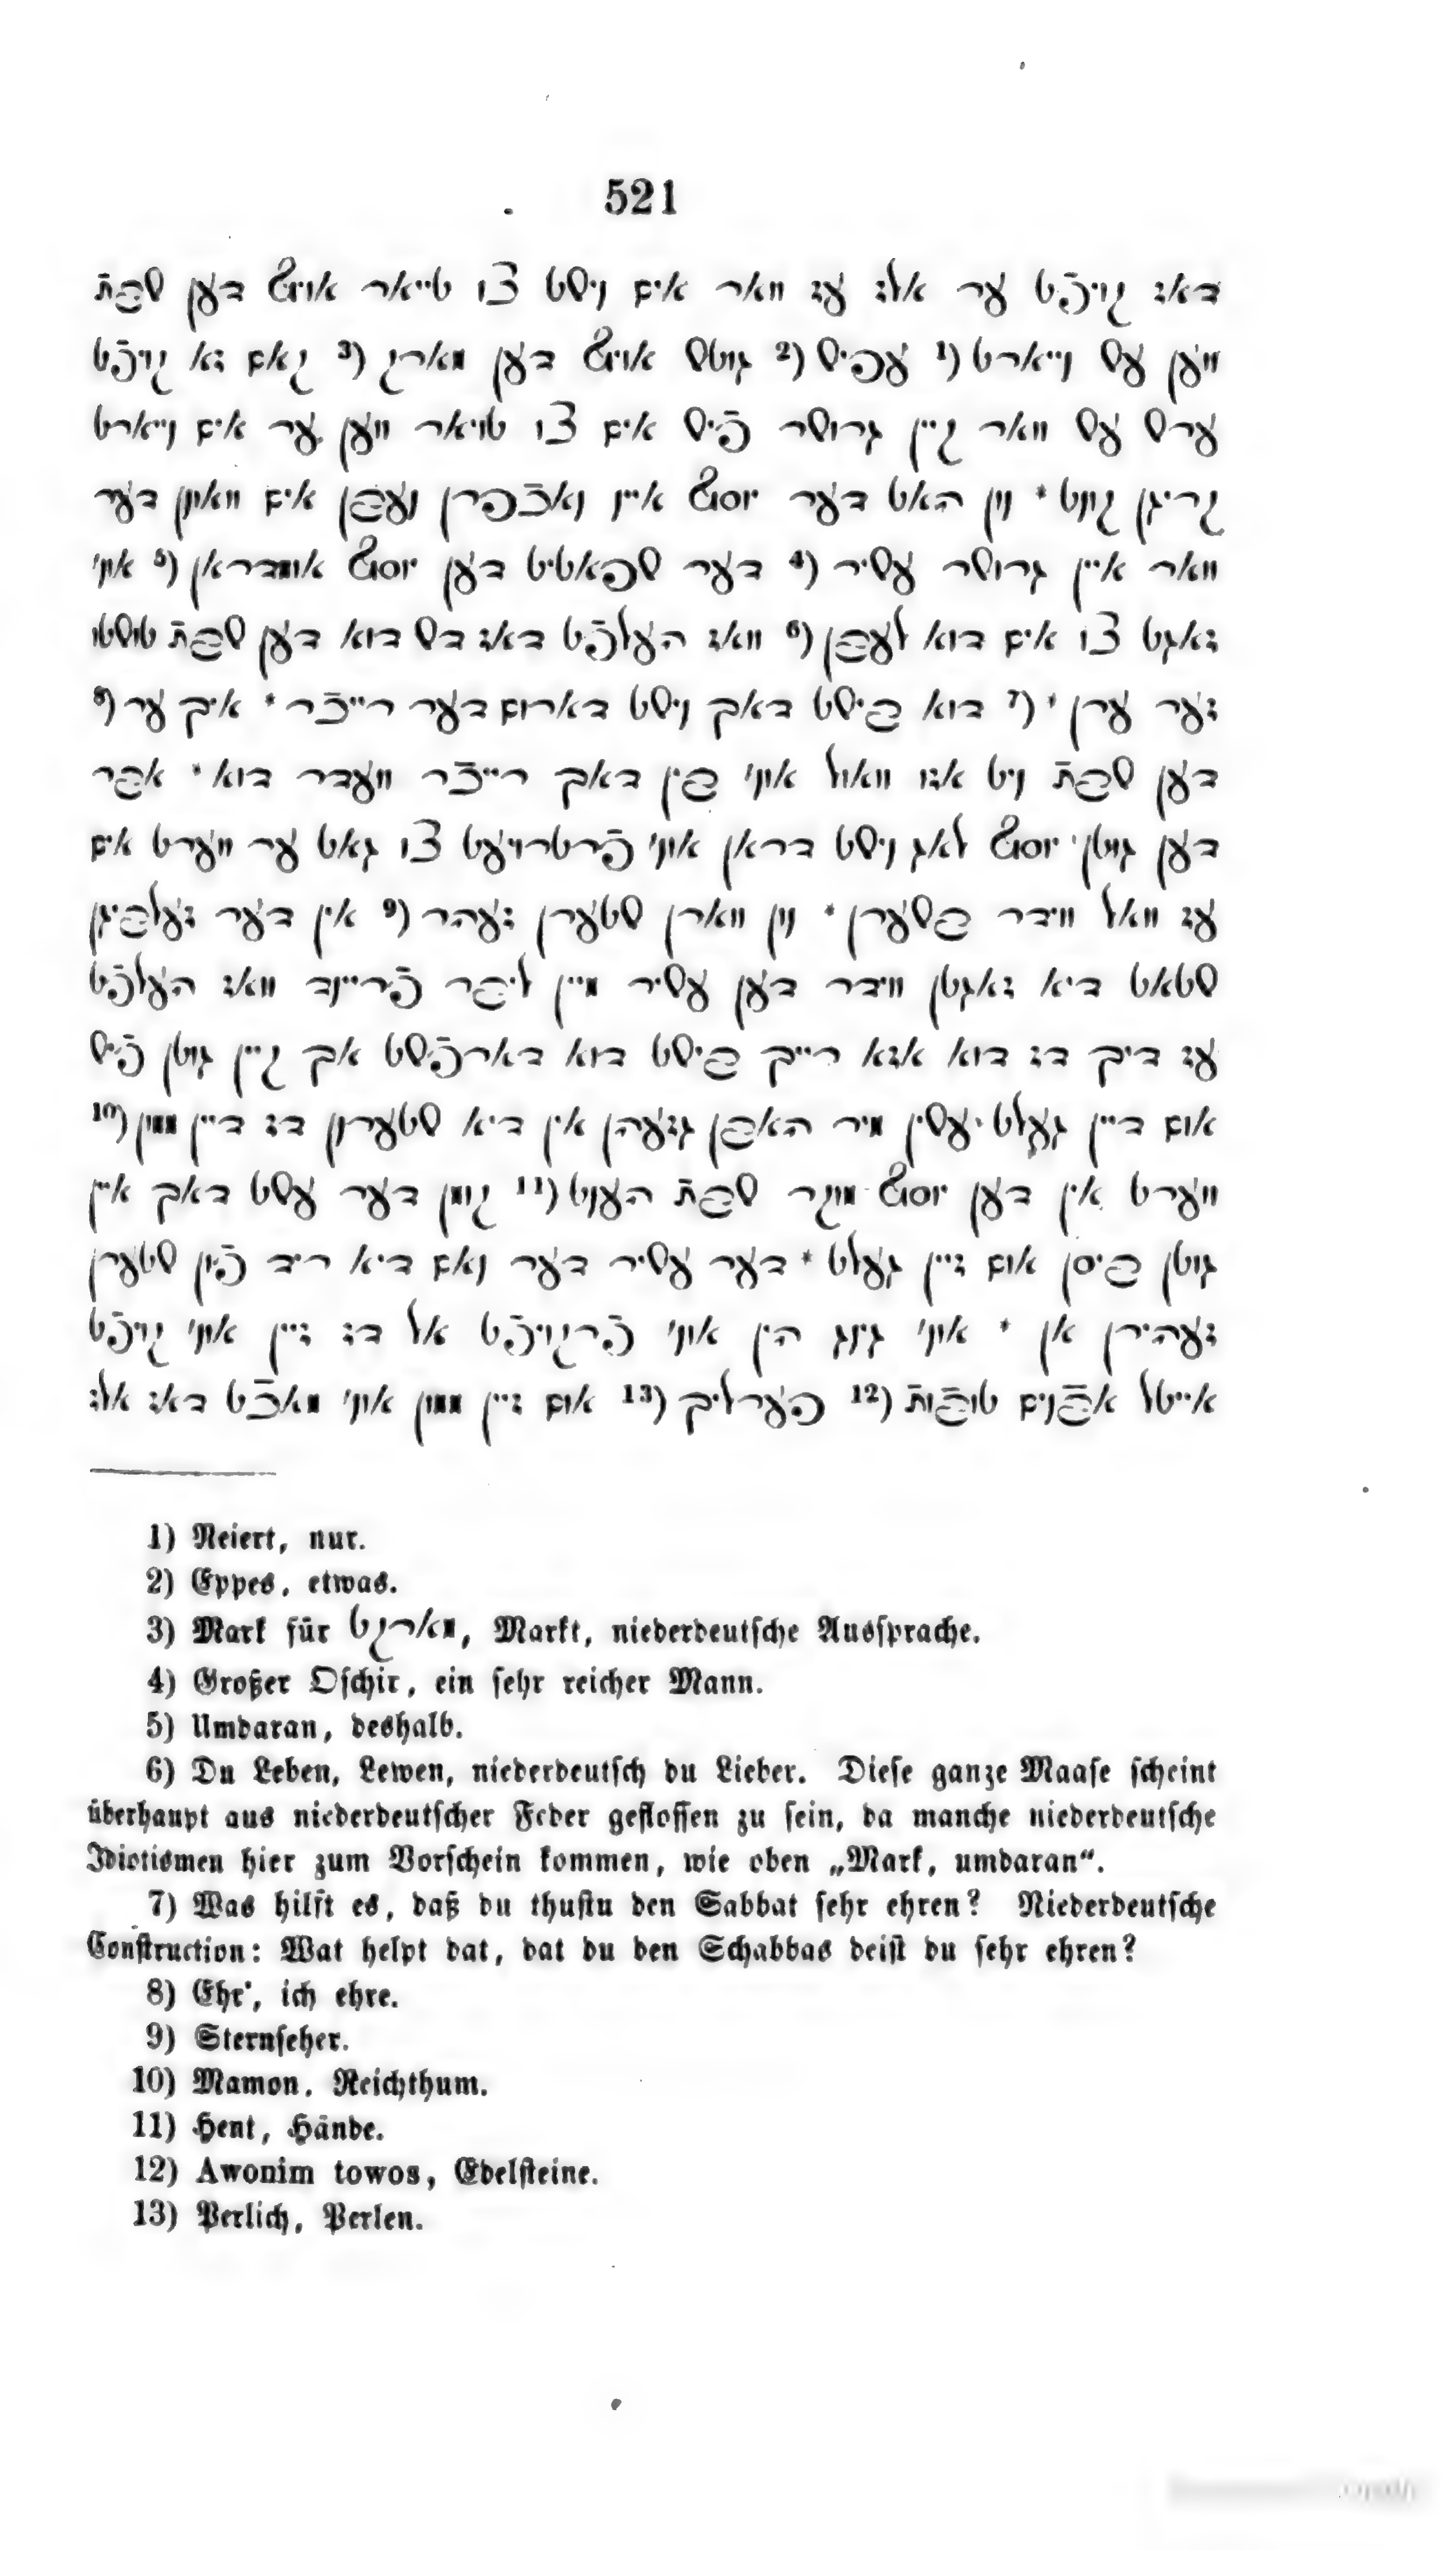 521
דאז קויפֿט ער אלז עז וואר אים נישט צו טייאר אויף דען שבת
ווען עש נייארט (1 עפיש (2 גוטש אויף דען מארק (3 קאם זא קויפֿט
ערש עש וואר קיין גרושר פֿיש אים צו טויאר ווען ער אים נייארט
קריגן קונט * נון האט דער יוסף איין נאכֿפרן נעבן אים וואונן דער
וואר איין גרושר עשיר (4 דער שפאטיט דען יוסף אומדראן (5 אונ׳
זאגט צו אים דוא לעבן (6 וואז העלפֿט דאז דש דוא דען שבת טושטו
זער ערן * (7 דוא בישט דאך נישט דארום דער רייכֿר * איך ער (8
דען שבת ניט אזו וואול אונ׳ בין דאך רייכֿר וועדר דוא * אבר
דען גוטן יוסף לאג נישט דראן אונ׳ פֿרטרויעט צו גאט ער ווערט אים
עז וואל ווידר בשערן * נון ווארן שטערן זעהר (9 אין דער זעלביגן
שטאט דיא זאגטן ווידר דען עשיר מיין ליבר פֿריינד וואז העלפֿט
עז דיך דז דוא אזא רייך בישט דוא דארפֿשט אך קיין גוטן פֿיש
אום דיין געלט יעשין מיר האבן גזעהן אין דיא שטערון דז דיין ממון (10
ווערט אין דען יוסף מוקר שבת הענט (11 קומן דער עשט דאך איין
גוטן ביסן אום זיין געלט * דער עשיר דער נאם דיא ריד פֿון שטערן
זעהירן אן * אונ׳ גינג הין אונ׳ פֿרקויפֿט אל דז זיין אונ׳ קויפֿט
אייטל אבֿנים טובֿות (12 פערליך (13 אום זיין ממון אונ׳ מאכֿט דאז אלז
1) Neiert, nur.
2) Eppes, etwas.
3) Mark für מארקט, Markt, niederdeutsche Aussprache.
4) Großer Oschir, ein sehr reicher Mann.
5) Umdaran, deshalb.
6) Du Leben, Lewen, niederdeutsch du Lieber. Diese ganze Maase scheint
überhaupt aus niederdeutscher Feder geflossen zu sein, da manche niederdeutsche
Idiotismen hier zum Vorschein kommen, wie oben „Mark, umdaran“.
7) Was hilft es, daß du thustu den Sabbat sehr ehren? Niederdeutsche
Construction: Wat helpt dat, dat du den Schabbas deist du sehr ehren?
8) Ehr', ich ehre.
9) Sternseher.
10) Mamon, Reichthum.
11) Hent, Hände.
12) Awonim towos, Edelsteine.
13) Perlich, Perlen.